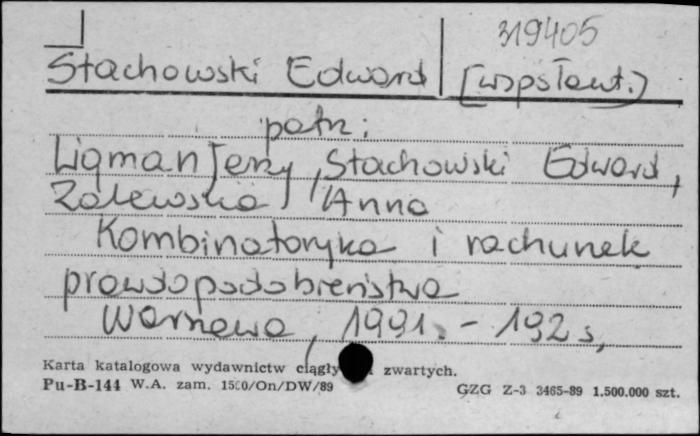 319405
Stachowski Edward [współaut.)
patrz:
Ligman Jerzy, Stachowski Edward,
Zalewska Anna
Kombinatoryka i rachunek
prawdopodobieństwa
Warszawa, 1991. - 192 s,
Karta katalogowa wydawnictw ciągły zwartych.
Pu-B-144 W.A. zam. 1500/On/DW/89 GZG Z-3 3465-89 1.500.000 szt.